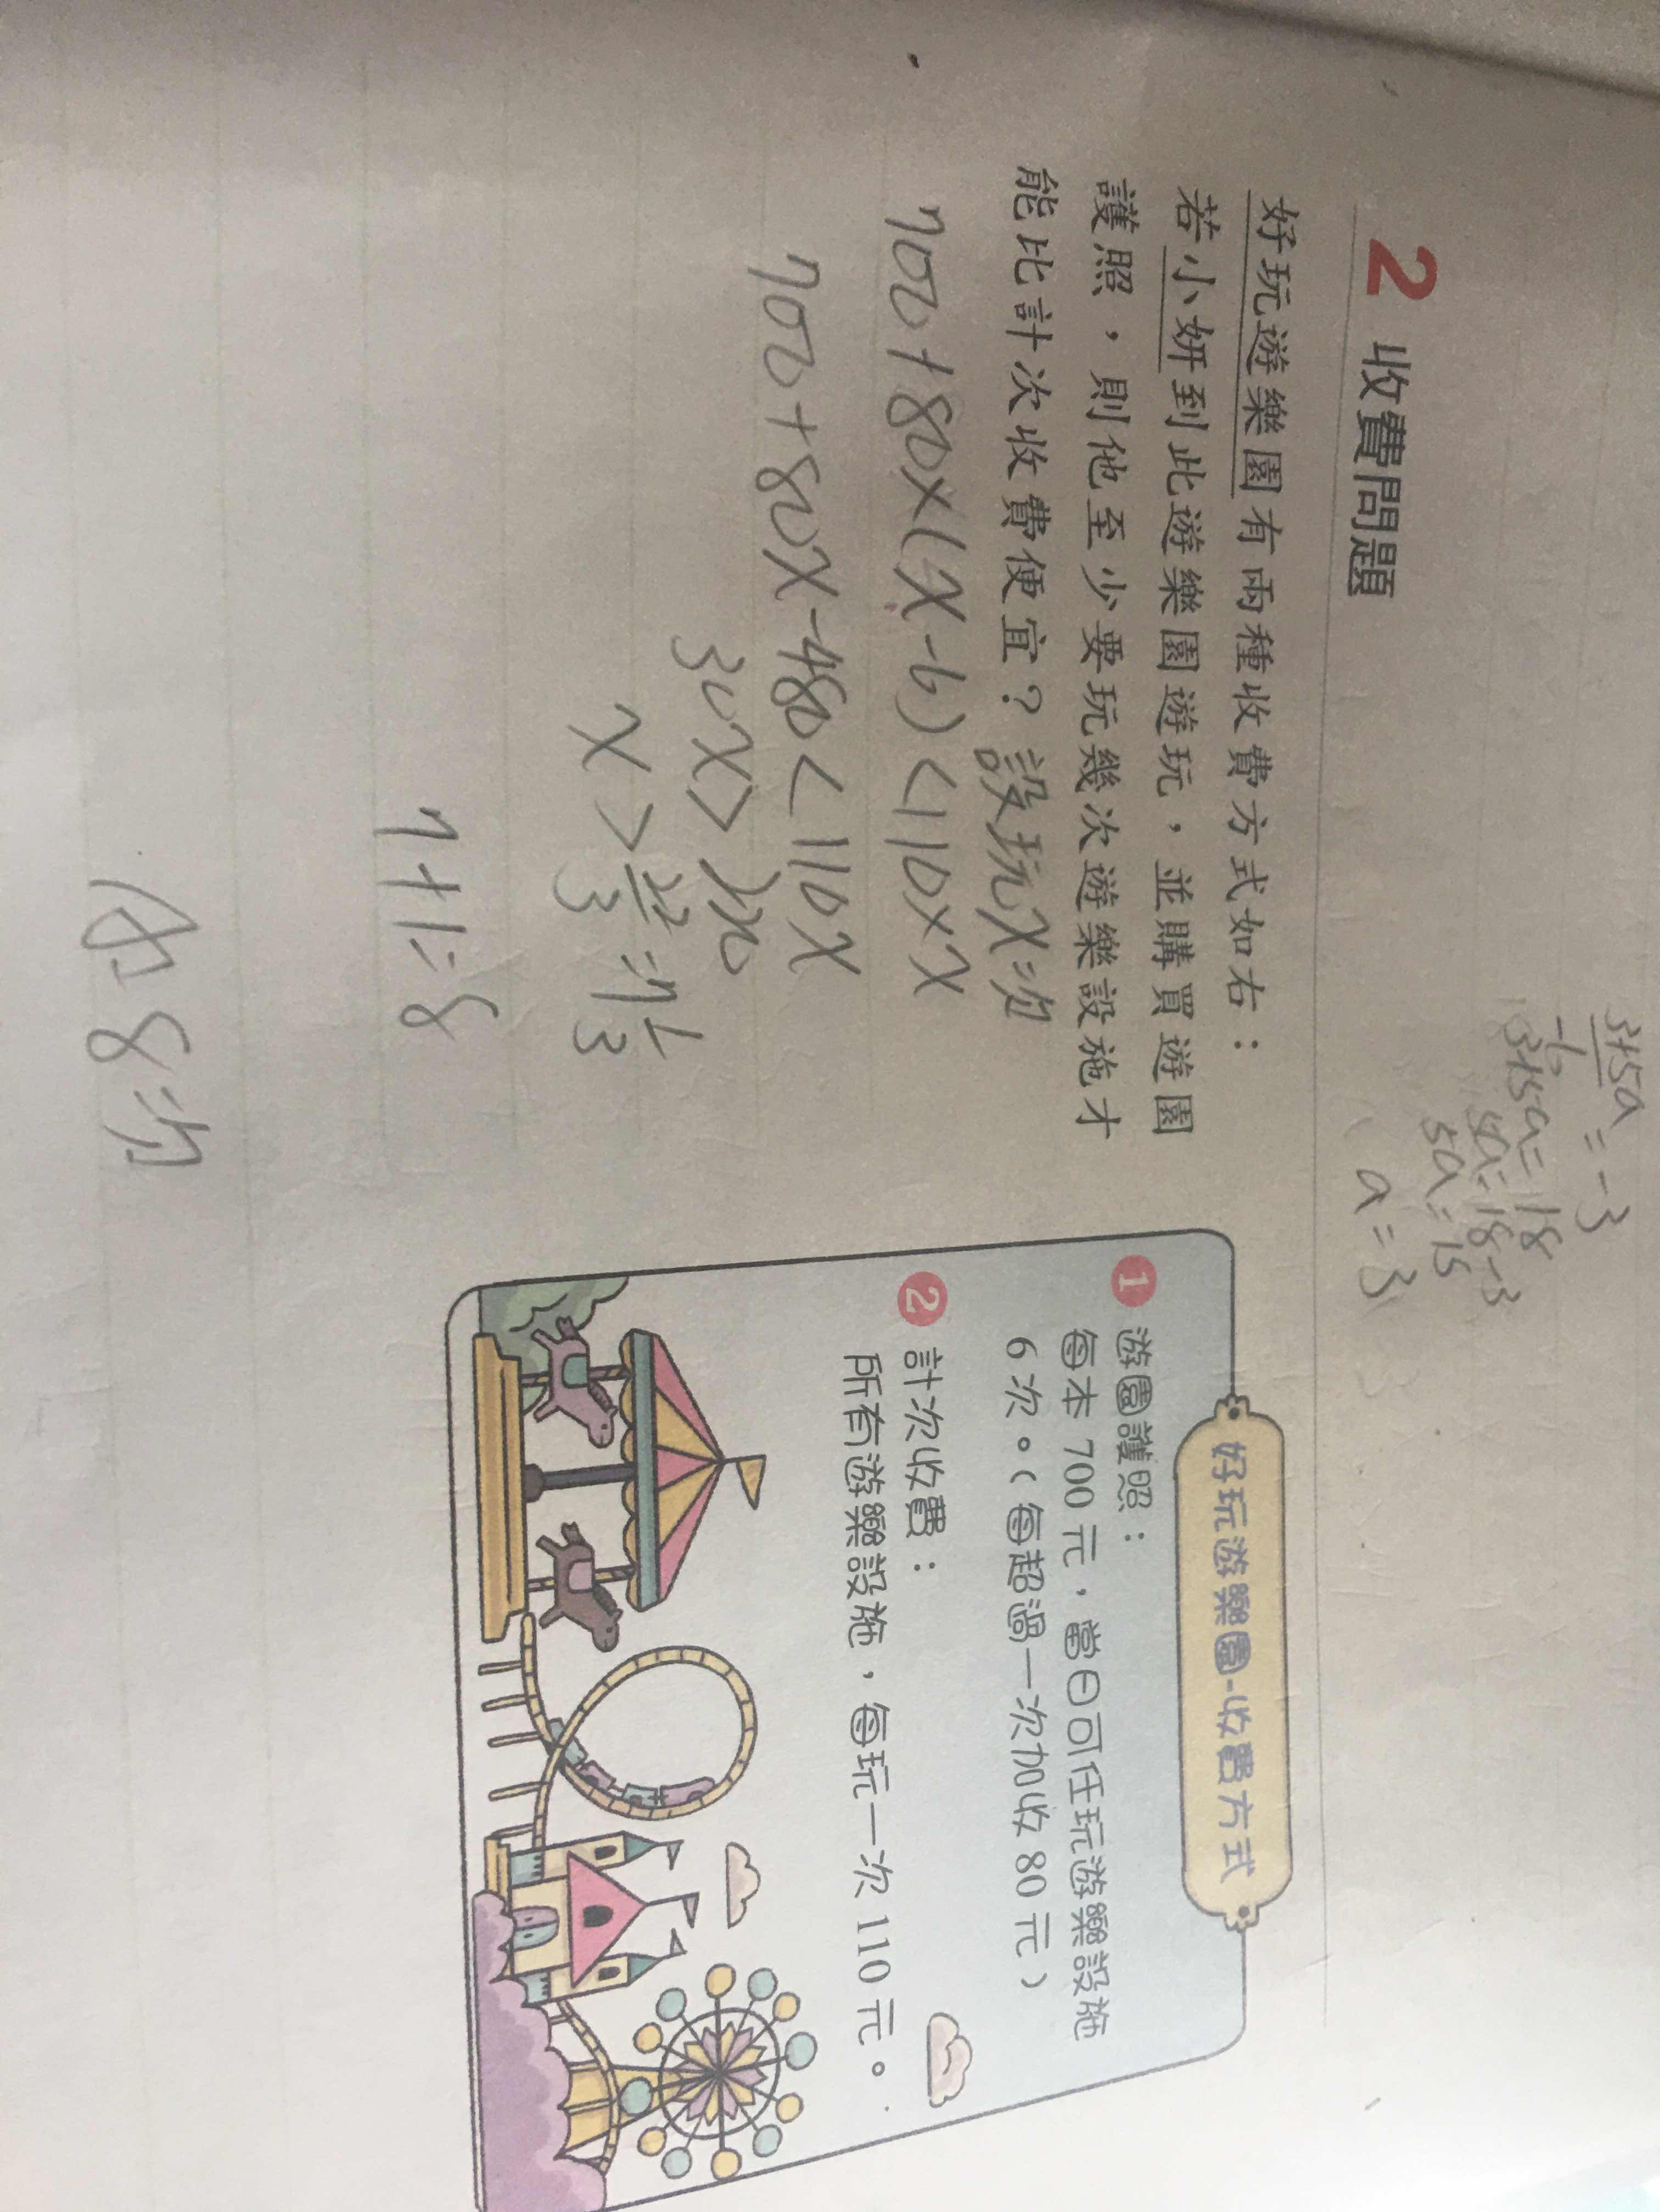 3+5a
—— = -3
-6
3+5a = 18
5a = 18-3
5a = 15
a = 3
2 收費問題
好玩遊樂園有兩種收費方式如右：
若小妍到此遊樂園遊玩，並購買遊園
護照，則他至少要玩幾次遊樂設施才
能比計次收費便宜？設玩X次
700+80×(X-6)<110×X
700+80X-480<110X
30X>220
X>22/3=7 1/3
7+1=8
A:8次
好玩遊樂園-收費方式
1 遊園護照：
每本 700 元，當日可任玩遊樂設施
6 次。（每超過一次加收 80 元）
2 計次收費：
所有遊樂設施，每玩一次 110 元。